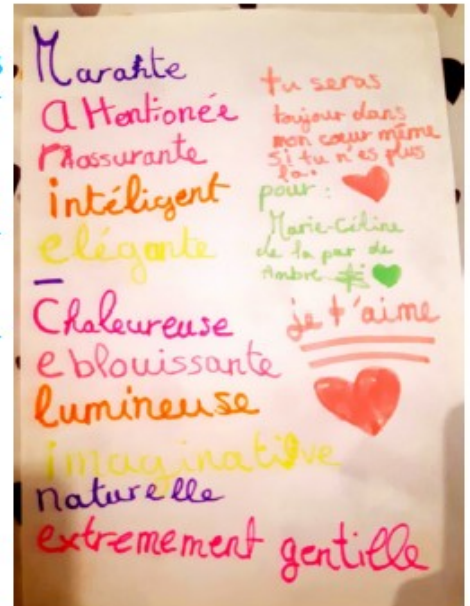 Marahte
attentionée
rassurante
intéligent
elégante
-
Chaleureuse
eblouissante
lumineuse
imaginative
naturelle
extremement gentille
tu seras
toujour dans
mon cœur même
si tu n'es plus
la.
pour :
Marie-Céline
de la par de
Ambre
je t'aime